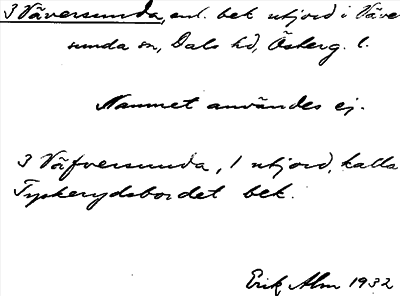 3 Väversunda, enl. bek utjord i Väver
sunda sn, Dals hd, Österg. l.
Namnet användes ej.
3 Väfversunda, 1 utjord, kalla
Tyskerydsbordet bek.
Erik Alm 1932